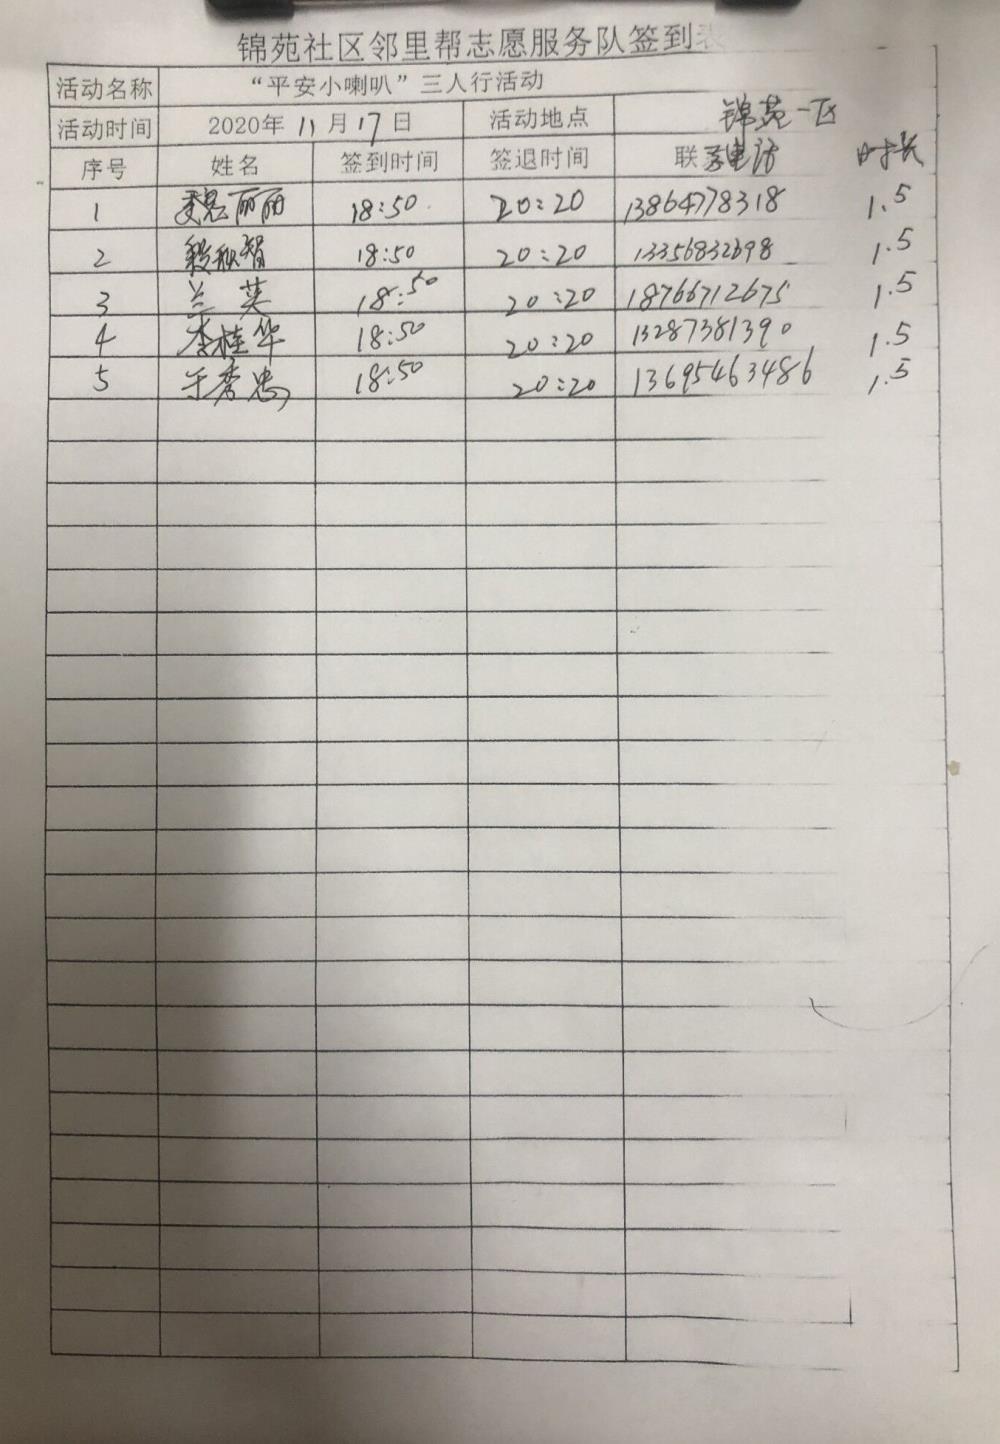 锦苑社区邻里帮志愿服务队签到表
活动名称 “平安小喇叭”三人行活动
活动时间 2020年 11月 17日 活动地点 锦苑一区
序号 姓名 签到时间 签退时间 联系电话 时长
1 魏丽丽 18:50 20:20 13864778318 1.5
2 18:50 20:20 13356832698 1.5
3 兰英 18:50 20:20 18766712675 1.5
4 李桂华 18:50 20:20 13287381390 1.5
5 于秀忠 18:50 20:20 13695463486 1.5